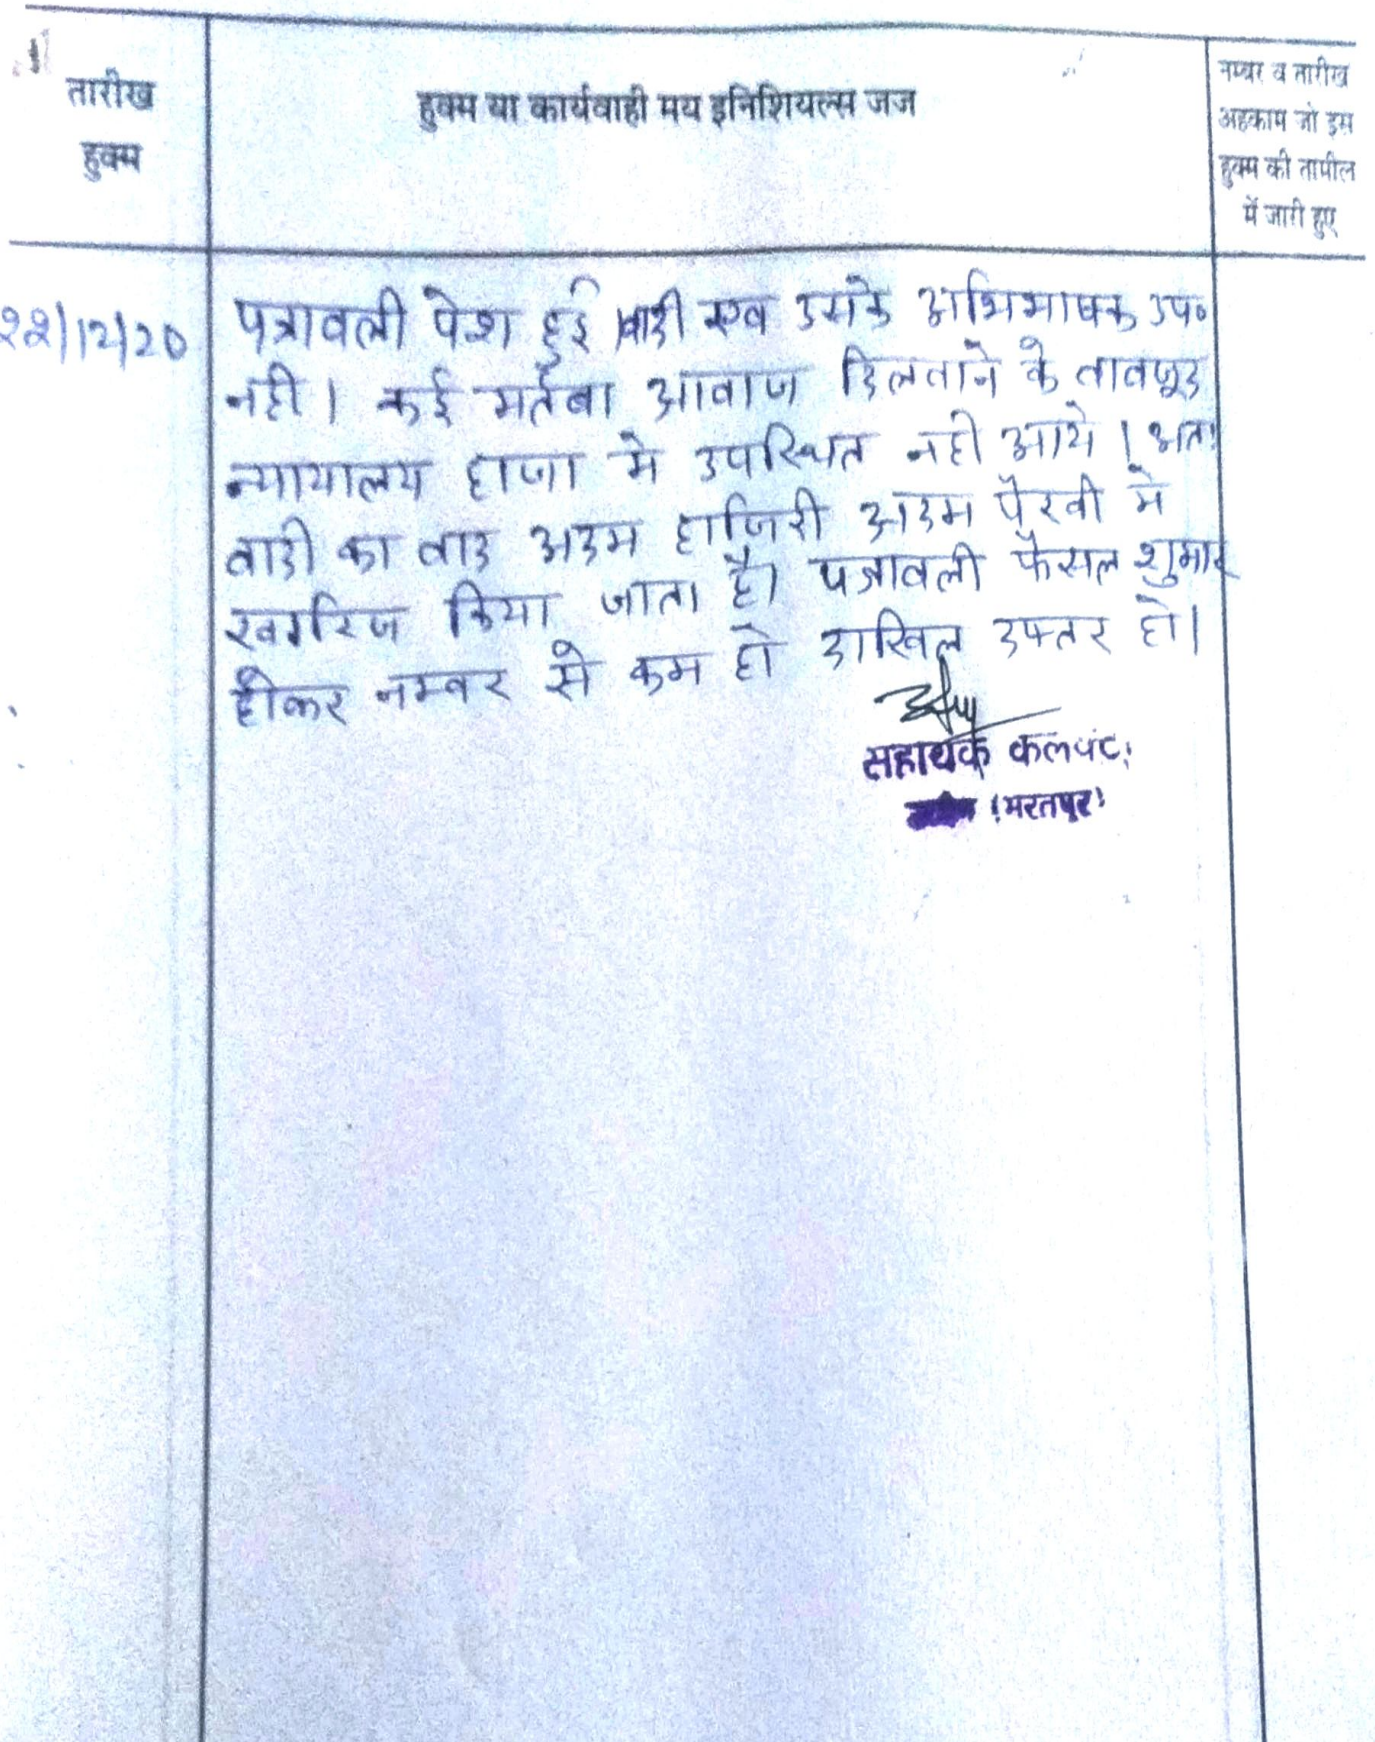 तारीख
हुक्म
हुक्म या कार्यवाही मय इनिशियल्स जज
नम्बर व तारीख
अहकाम जो इस
हुक्म की तामील
में जारी हुए
22/12/20
पत्रावली पेश हुई। वादी एव उसके अभिभाषक उप०
नही। कई मर्तबा आवाज दिलवाने के वावजूद
न्यायालय हाजा मे उपस्थित नही आये। अतः
वादी का वाद अदम हाजिरी अदम पैरवी मे
खारिज किया जाता है। पत्रावली फैसल शुमार
होकर नम्बर से कम हो दाखिल दफ्तर हो।
सहायक कलक्टर
(भरतपुर)